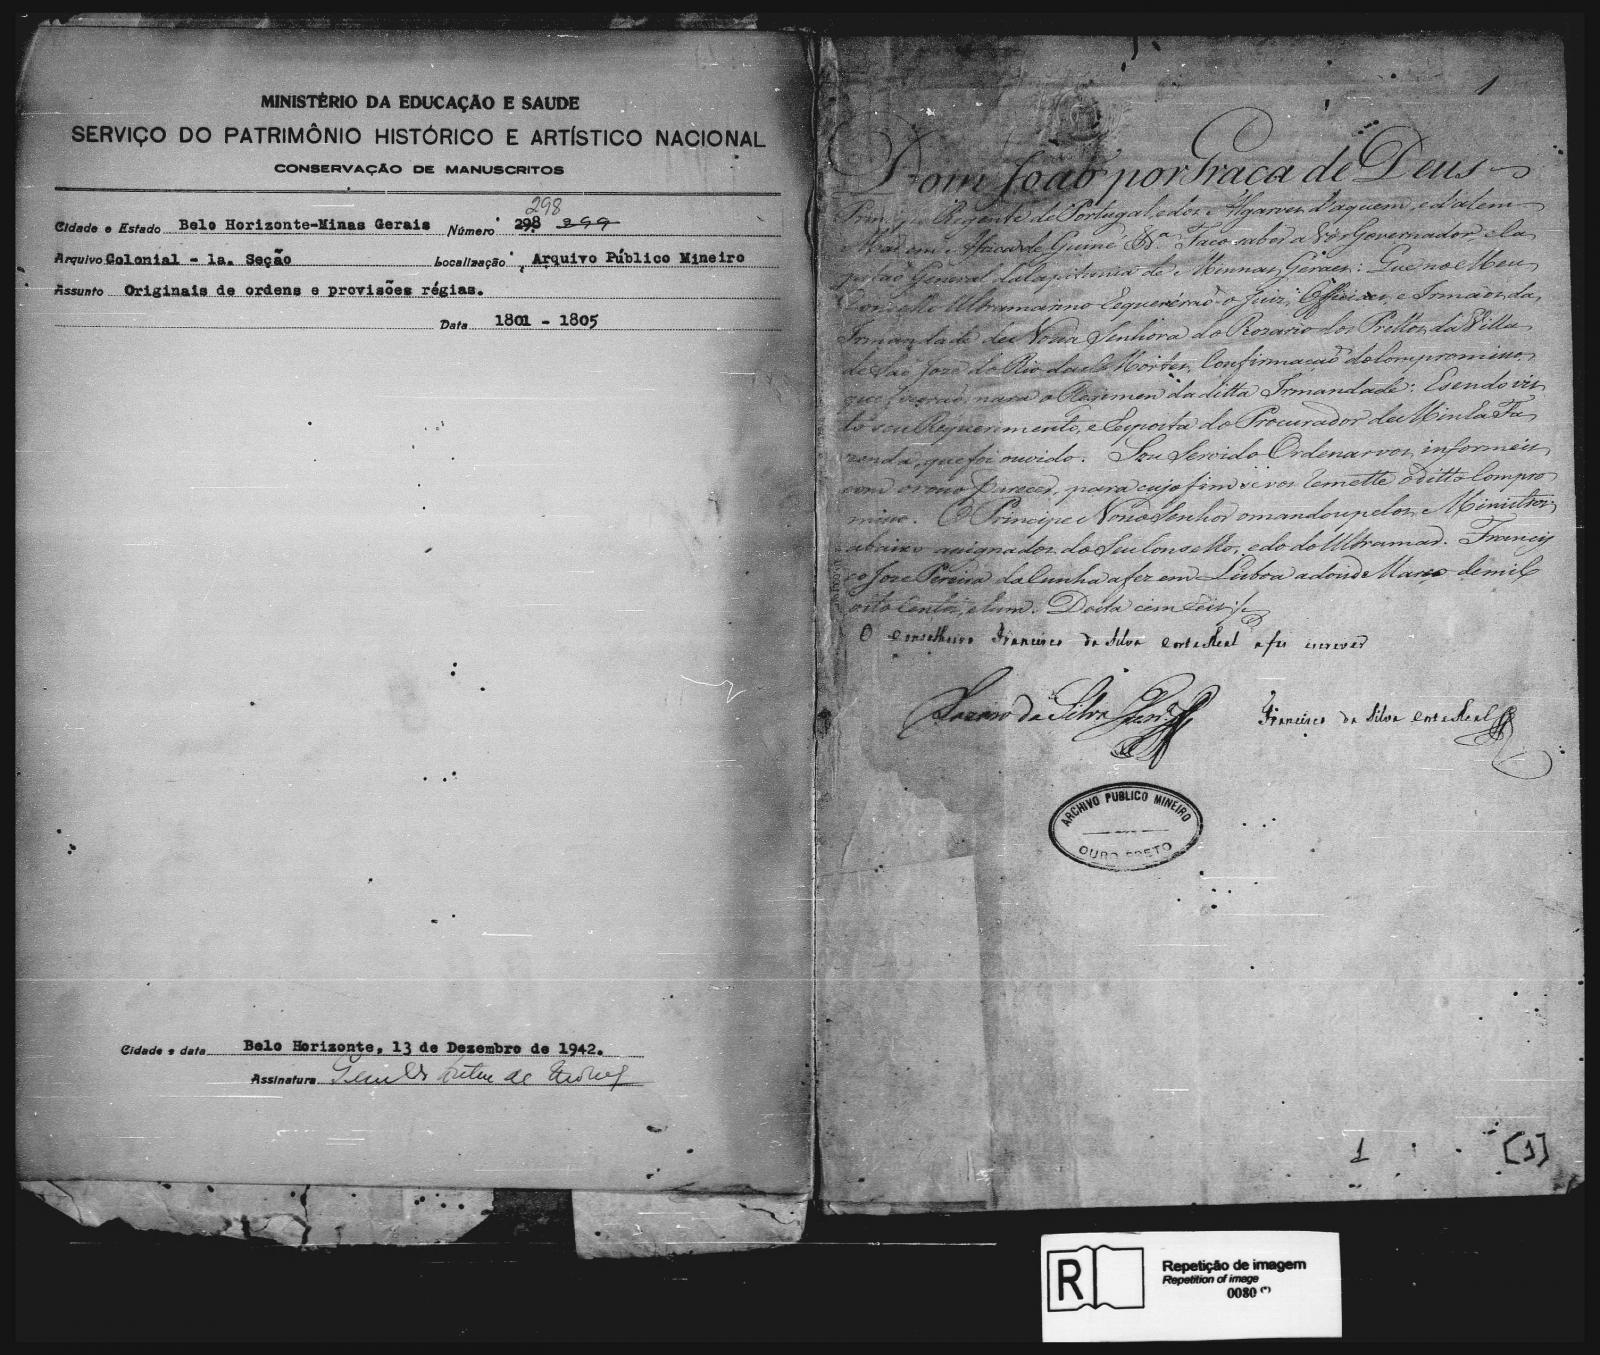 MINISTÉRIO DA EDUCAÇÃO E SAUDE
SERVIÇO DO PATRIMÔNIO HISTÓRICO E ARTÍSTICO NACIONAL
CONSERVAÇÃO DE MANUSCRITOS
298
Cidade e Estado Belo Horizonte-Minas Gerais Número 298 299
Arquivo Colonial - 1a. Seção Localização Arquivo Público Mineiro
Assunto Originais de ordens e provisões régias.
Data 1801 - 1805
Cidade e data Belo Horizonte, 13 de Dezembro de 1942.
Assinatura
1
Dom João por Graça de Deus
Principe Regente de Portugal, e dos Algarves, d'aquem, e d'alem
Mar em Africa de Guiné &.ª Faço saber a Vós Governador e Ca
pitão General da Capitania de Minnas Geraes: Que no Meu
Conselho Ultramarino Requererão o Juiz, Officiaes, e Irmãos da
Irmandade de Nossa Senhora do Rozario dos Prettos da Villa
de São José do Rio das Mortes, Confirmação do Compromisso,
que fizerão para o Regimen da ditta Irmandade: E sendo vis
to seu Requerimento, e Resposta do Procurador de Minha Fa
zenda, que foi ouvido. Sou Servido Ordenarvos, informeis
com o vosso parecer, para cujo fim se vos remette o ditto Compro
misso. O Principe Nosso Senhor o mandou pelos Ministros
abaixo assignados do Seu Conselho, e do do Ultramar. Francis
co José Pereira da Cunha a fez em Lisboa a dous de Março de mil
oito Centos, e hum. Desta cem reis
O Conselheiro Francisco da Silva Corte Real a fez escrever
Lazaro da Silva Ferr.ª Francisco da Silva Corte Real
ARCHIVO PUBLICO MINEIRO
OURO PRETO
1 [1]
R Repetição de imagem
Repetition of image
0080 (*)